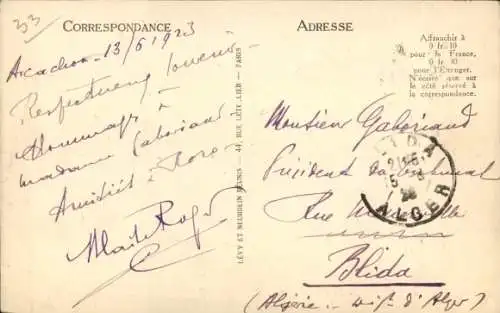 33
CORRESPONDANCE
Arcachon 13/6/1923
Respectueux souvenir
Hommages à
Madame Gaboriaud
Amitiés à
LÉVY ET NEURDEIN RÉUNIS - 44, RUE LETELLIER - PARIS
ADRESSE
Affranchir à
0 fr. 10
pour la France,
0 fr. 10
pour l'Étranger.
N'écrire que sur
le côté réservé à
la correspondance.
Monsieur Gaboriaud
Président du tribunal
Rue
Blida
(Algérie - d'Alger)
ALGER